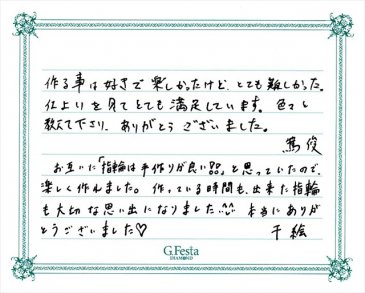 作る事は好きで楽しかったけど、とても難しかった。
仕上りを見てとても満足しています。色々と
教えて下さり、ありがとうございました。
篤俊
お互いに「指輪は手作りが良い」と思っていたので、
楽しく作れました。作っている時間も、出来た指輪
も大切な思い出になりました 本当にありが
とうございました♡
千絵
G.Festa
DIAMOND